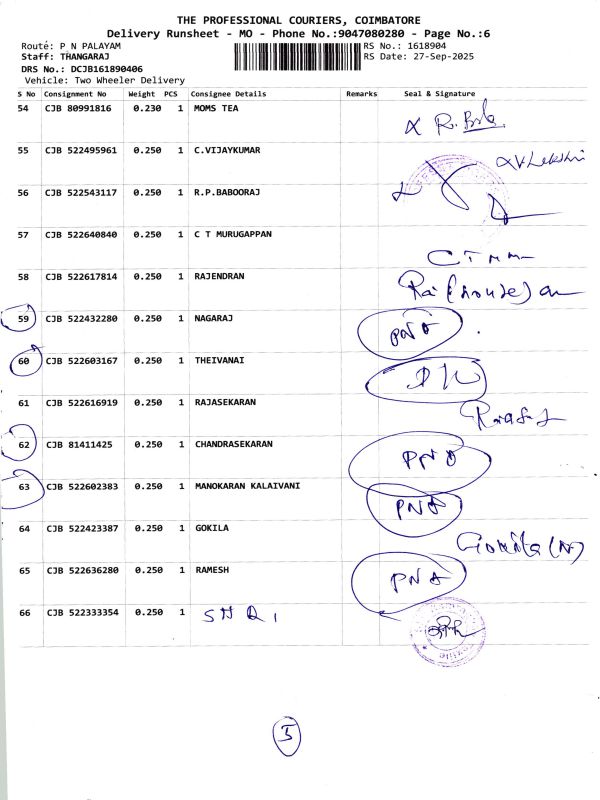 THE PROFESSIONAL COURIERS, COIMBATORE
Delivery Runsheet - MO - Phone No.:9047080280 - Page No.:6
Route: P N PALAYAM RS No.: 1618904
Staff: THANGARAJ RS Date: 27-Sep-2025
DRS No.: DCJB161890406
Vehicle: Two Wheeler Delivery
S No Consignment No Weight PCS Consignee Details Remarks Seal & Signature
54 CJB 80991816 0.230 1 MOMS TEA
55 CJB 522495961 0.250 1 C.VIJAYKUMAR
56 CJB 522543117 0.250 1 R.P.BABOORAJ
57 CJB 522640840 0.250 1 C T MURUGAPPAN
58 CJB 522617814 0.250 1 RAJENDRAN
59 CJB 522432280 0.250 1 NAGARAJ
60 CJB 522603167 0.250 1 THEIVANAI
61 CJB 522616919 0.250 1 RAJASEKARAN
62 CJB 81411425 0.250 1 CHANDRASEKARAN
63 CJB 522602383 0.250 1 MANOKARAN KALAIVANI PNA
64 CJB 522423387 0.250 1 GOKILA
65 CJB 522636280 0.250 1 RAMESH PNA
66 CJB 522333354 0.250 1
5